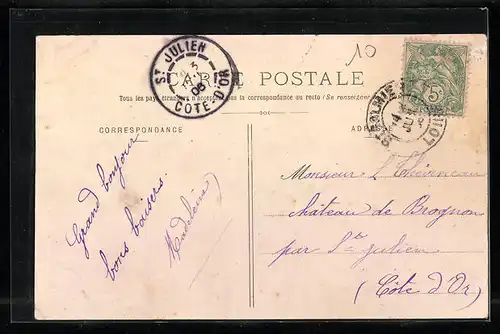 10
ST JULIEN
3
05
COTE D'OR
CARTE POSTALE
Tous les pays étrangers n'acceptent pas la correspondance au recto (Se renseigner
CORRESPONDANCE
5c
LOIRE
Grand bonjour
bons baisers
Madeleine
Monsieur L Théveneau
château de Brognon
par St Julien
(Côte d'Or)